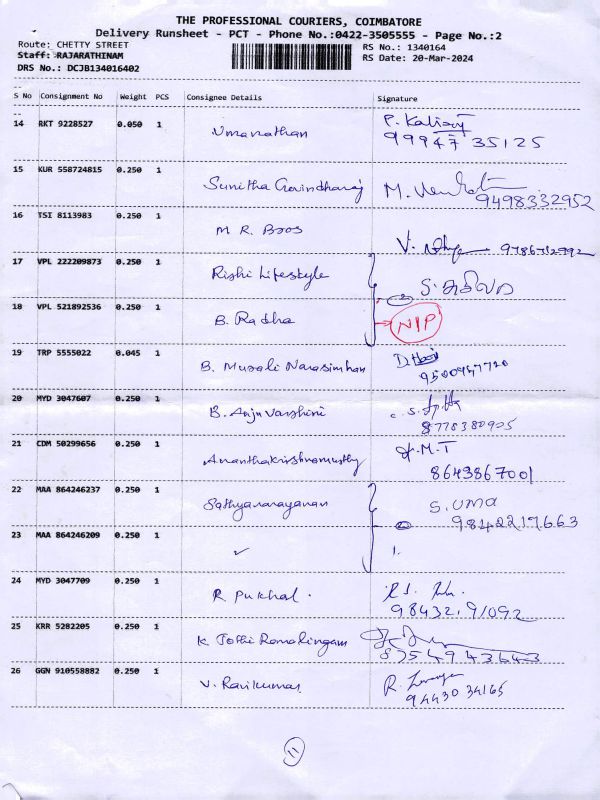 THE PROFESSIONAL COURIERS, COIMBATORE
Delivery Runsheet - PCT - Phone No.:0422-3505555 - Page No.:2
Route: CHETTY STREET RS No.: 1340164
Staff: RAJARATHINAM RS Date: 20-Mar-2024
DRS No.: DCJB134016402
--
S No Consignment No Weight PCS Consignee Details Signature
--
14 RKT 9228527 0.050 1 Umanathan P. Kaliaj
99947 35125
15 KUR 558724815 0.250 1 Sunitha Govindharaj M.
9498332952
16 TSI 8113983 0.250 1 M R. Boos V.
17 VPL 222209873 0.250 1 Rishi Lifestyle S.
18 VPL 521892536 0.250 1 B. Radha NIP
19 TRP 5555022 0.045 1 B. Murali Narasimhan
9500947720
20 MYD 3047607 0.250 1 B. Anju Varshini
8778380905
21 CDM 50299656 0.250 1 Ananthakrishnamurthy M.T
8643867001
22 MAA 864246237 0.250 1 Sathyanarayanan S. UMA
9842217663
23 MAA 864246209 0.250 1 ✓ 1.
24 MYD 3047709 0.250 1 R Pukhal.
9843291092
25 KRR 5282205 0.250 1 K Jothi Ramalingam
8754943643
26 GGN 910558882 0.250 1 V. Ravikumar R.
94430 34165
11